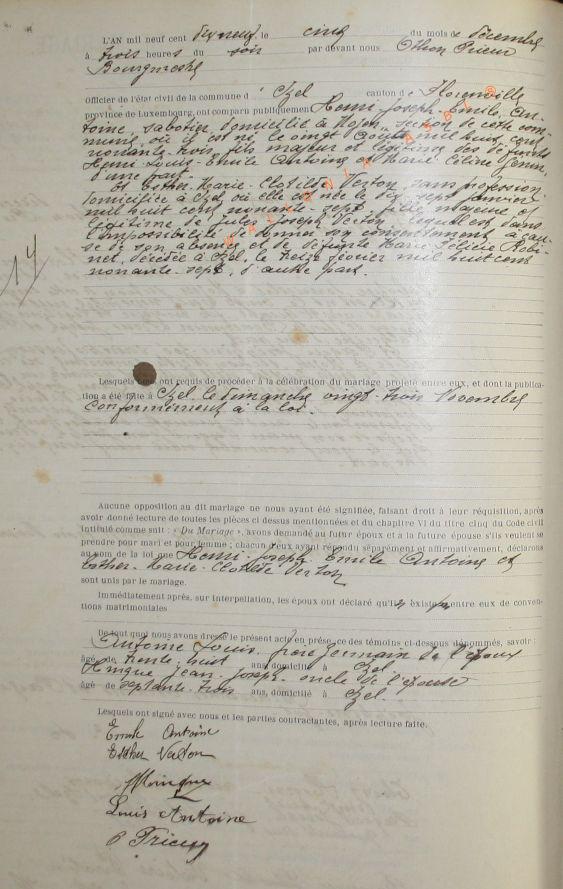 L'AN mil neuf cent dix neuf, le cinq du mois de décembre
à trois heures du soir par devant nous Othon Prieur
Bourgmestre
Officier de l'état civil de la commune d' Izel canton de Florenville
province de Luxembourg, ont comparu publiquement Henri-Joseph-Emile An-
toine, sabotier, domicilié à section de cette com-
mune, où il est né le vingt mil huit cent
nonante trois fils majeur et légitime des défunts
Henri-Louis-Emile Antoine et Marie-Céline
d'une part
et Esther-Marie-Clotilde Verton, sans profession
domiciliée à Izel, où elle est née le dix sept janvier
mil huit cent nonante-sept, fille majeure et
légitime de Jules Joseph Verton lequel est dans
l'impossibilité de donner son consentement à cau-
se de son absence, et de défunte Marie-Félicie Robi-
net, décédée à Izel, le treize février mil huit cent
nonante-sept, d'autre part.
14
Lesquels nous ont requis de procéder à la célébration du mariage projeté entre eux, et dont la publica-
tion a été faite à Izel le dimanche vingt-trois Novembre
Conformément à la loi.
Aucune opposition au dit mariage ne nous ayant été signifiée, faisant droit à leur réquisition, après
avoir donné lecture de toutes les pièces ci dessus mentionnées et du chapitre VI du titre cinq du Code civil
intitulé comme suit : « Du Mariage », avons demandé au futur époux et à la future épouse s'ils veulent se
prendre pour mari et pour femme ; chacun d'eux ayant répondu séparément et affirmativement, déclarons
au nom de la loi que Henri-Joseph-Emile Antoine et
Esther-Marie-Clotilde Verton
sont unis par le mariage.
Immédiatement après, sur interpellation, les époux ont déclaré qu'il existe entre eux de conven-
tions matrimoniales
De tout quoi nous avons dressé le présent acte en présence des témoins ci-dessous dénommés, savoir :
Antoine Louis, frère germain de l'époux
âgé de trente-huit ans, domicilié à Izel.
Jean-Joseph oncle de l'épouse
âgé de septante-trois ans, domicilié à Izel.
Lesquels ont signé avec nous et les parties contractantes, après lecture faite.
Emile Antoine
Esther Verton
Louis Antoine
O Prieur